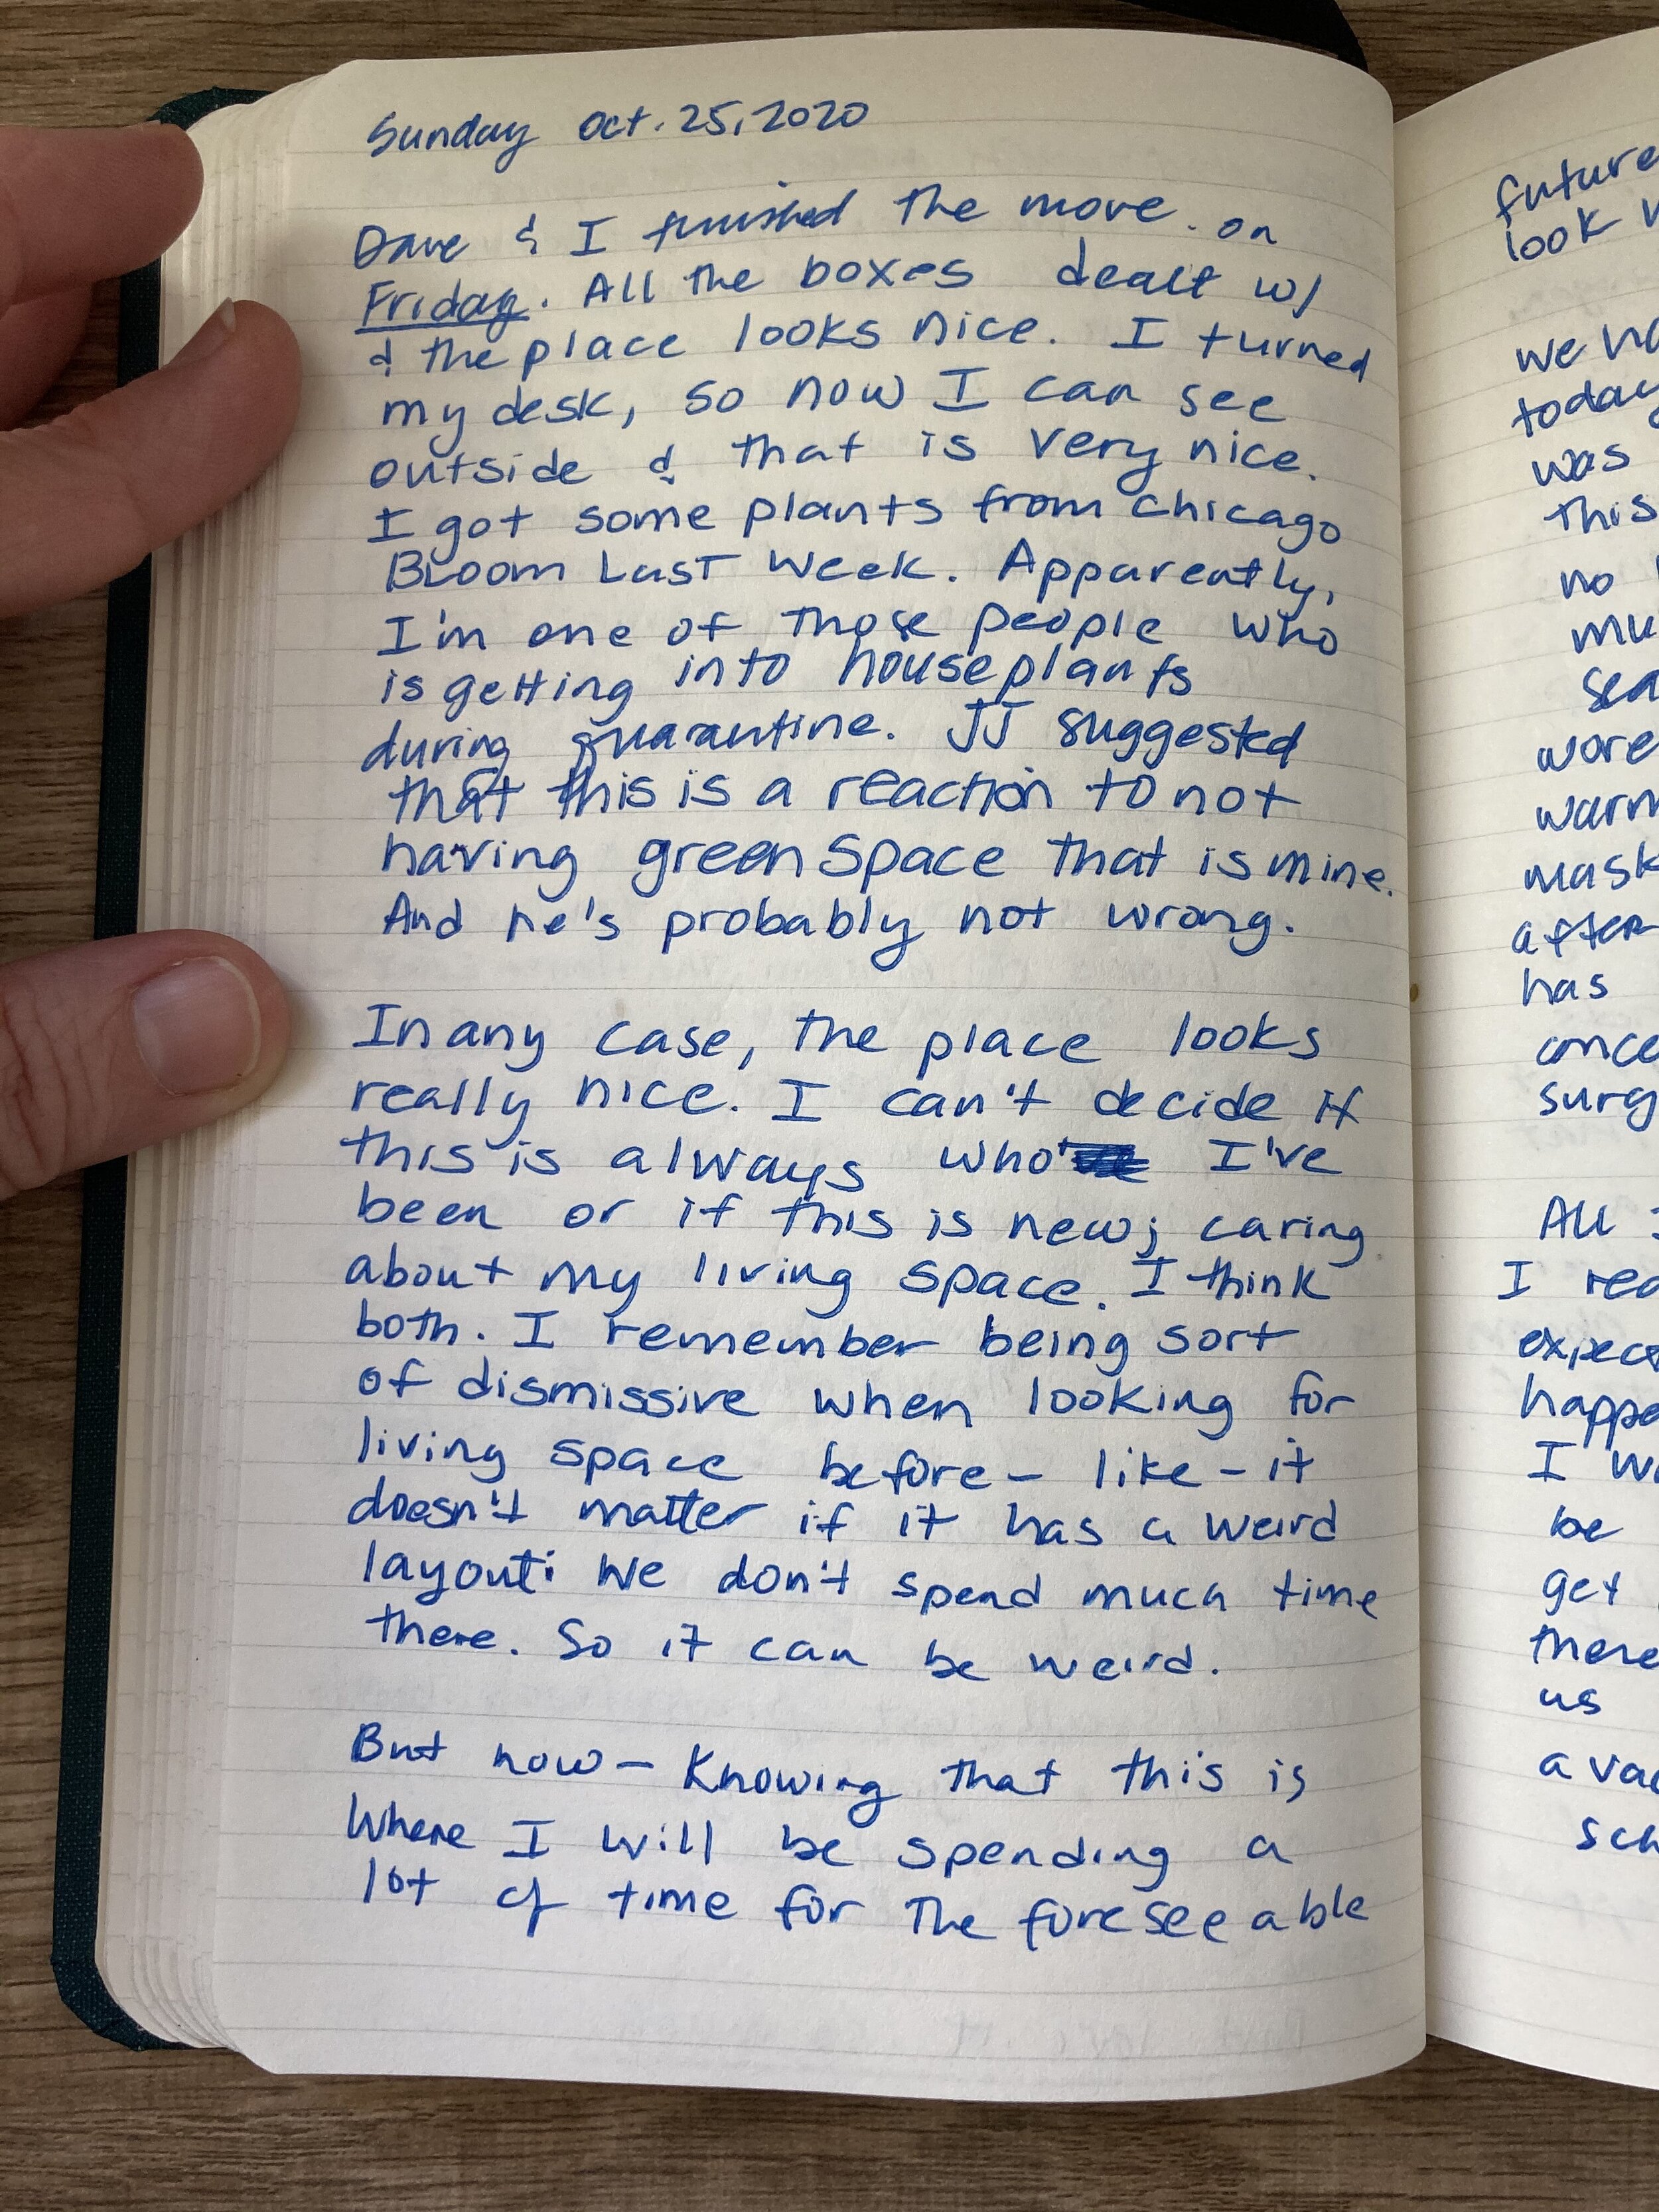 Sunday Oct. 25, 2020
Dave & I finished the move. on
Friday. All the boxes dealt w/
& the place looks nice. I turned
my desk, so now I can see
outside & that is very nice.
I got some plants from Chicago
Bloom Last Week. Apparently,
I'm one of those people who
is getting into houseplants
during quarantine. JJ suggested
that this is a reaction to not
having green space that is mine.
And he's probably not wrong.
In any case, the place looks
really nice. I can't decide if
this is always who I've
been or if this is new; caring
about my living space. I think
both. I remember being sort
of dismissive when looking for
living space before - like - it
doesn't matter if it has a weird
layout: we don't spend much time
there. So it can be weird.
But now - Knowing that this is
Where I will be spending a
lot of time for The foreseeable
future
look
we
today
was
this
no
wore
mask
after
has
All
I
expect
I
be
get
there
us
a